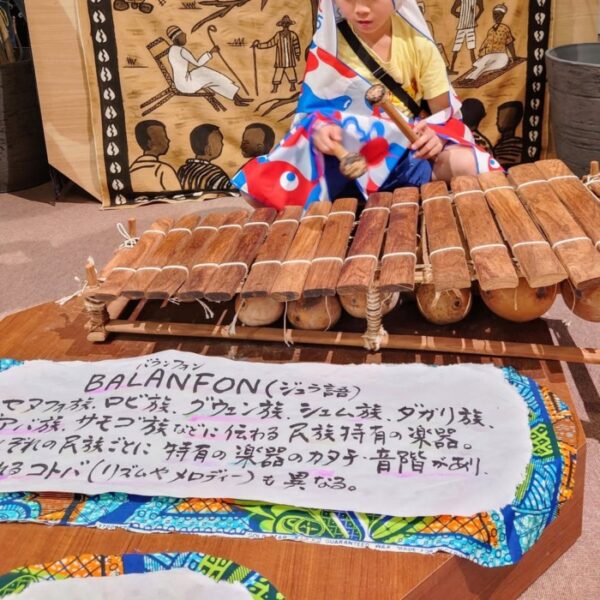 バランフォン
BALANFON(ジュラ語)
セヌフォ族、ロビ族、グウェン族、シェム族、ダガリ族、
族、サモゴ族などに伝わる民族特有の楽器。
ぞれの民族ごとに 特有の楽器のカタチ・音階があり、
るコトバ(リズムやメロディー)も異なる。
GUARANTEED WAX